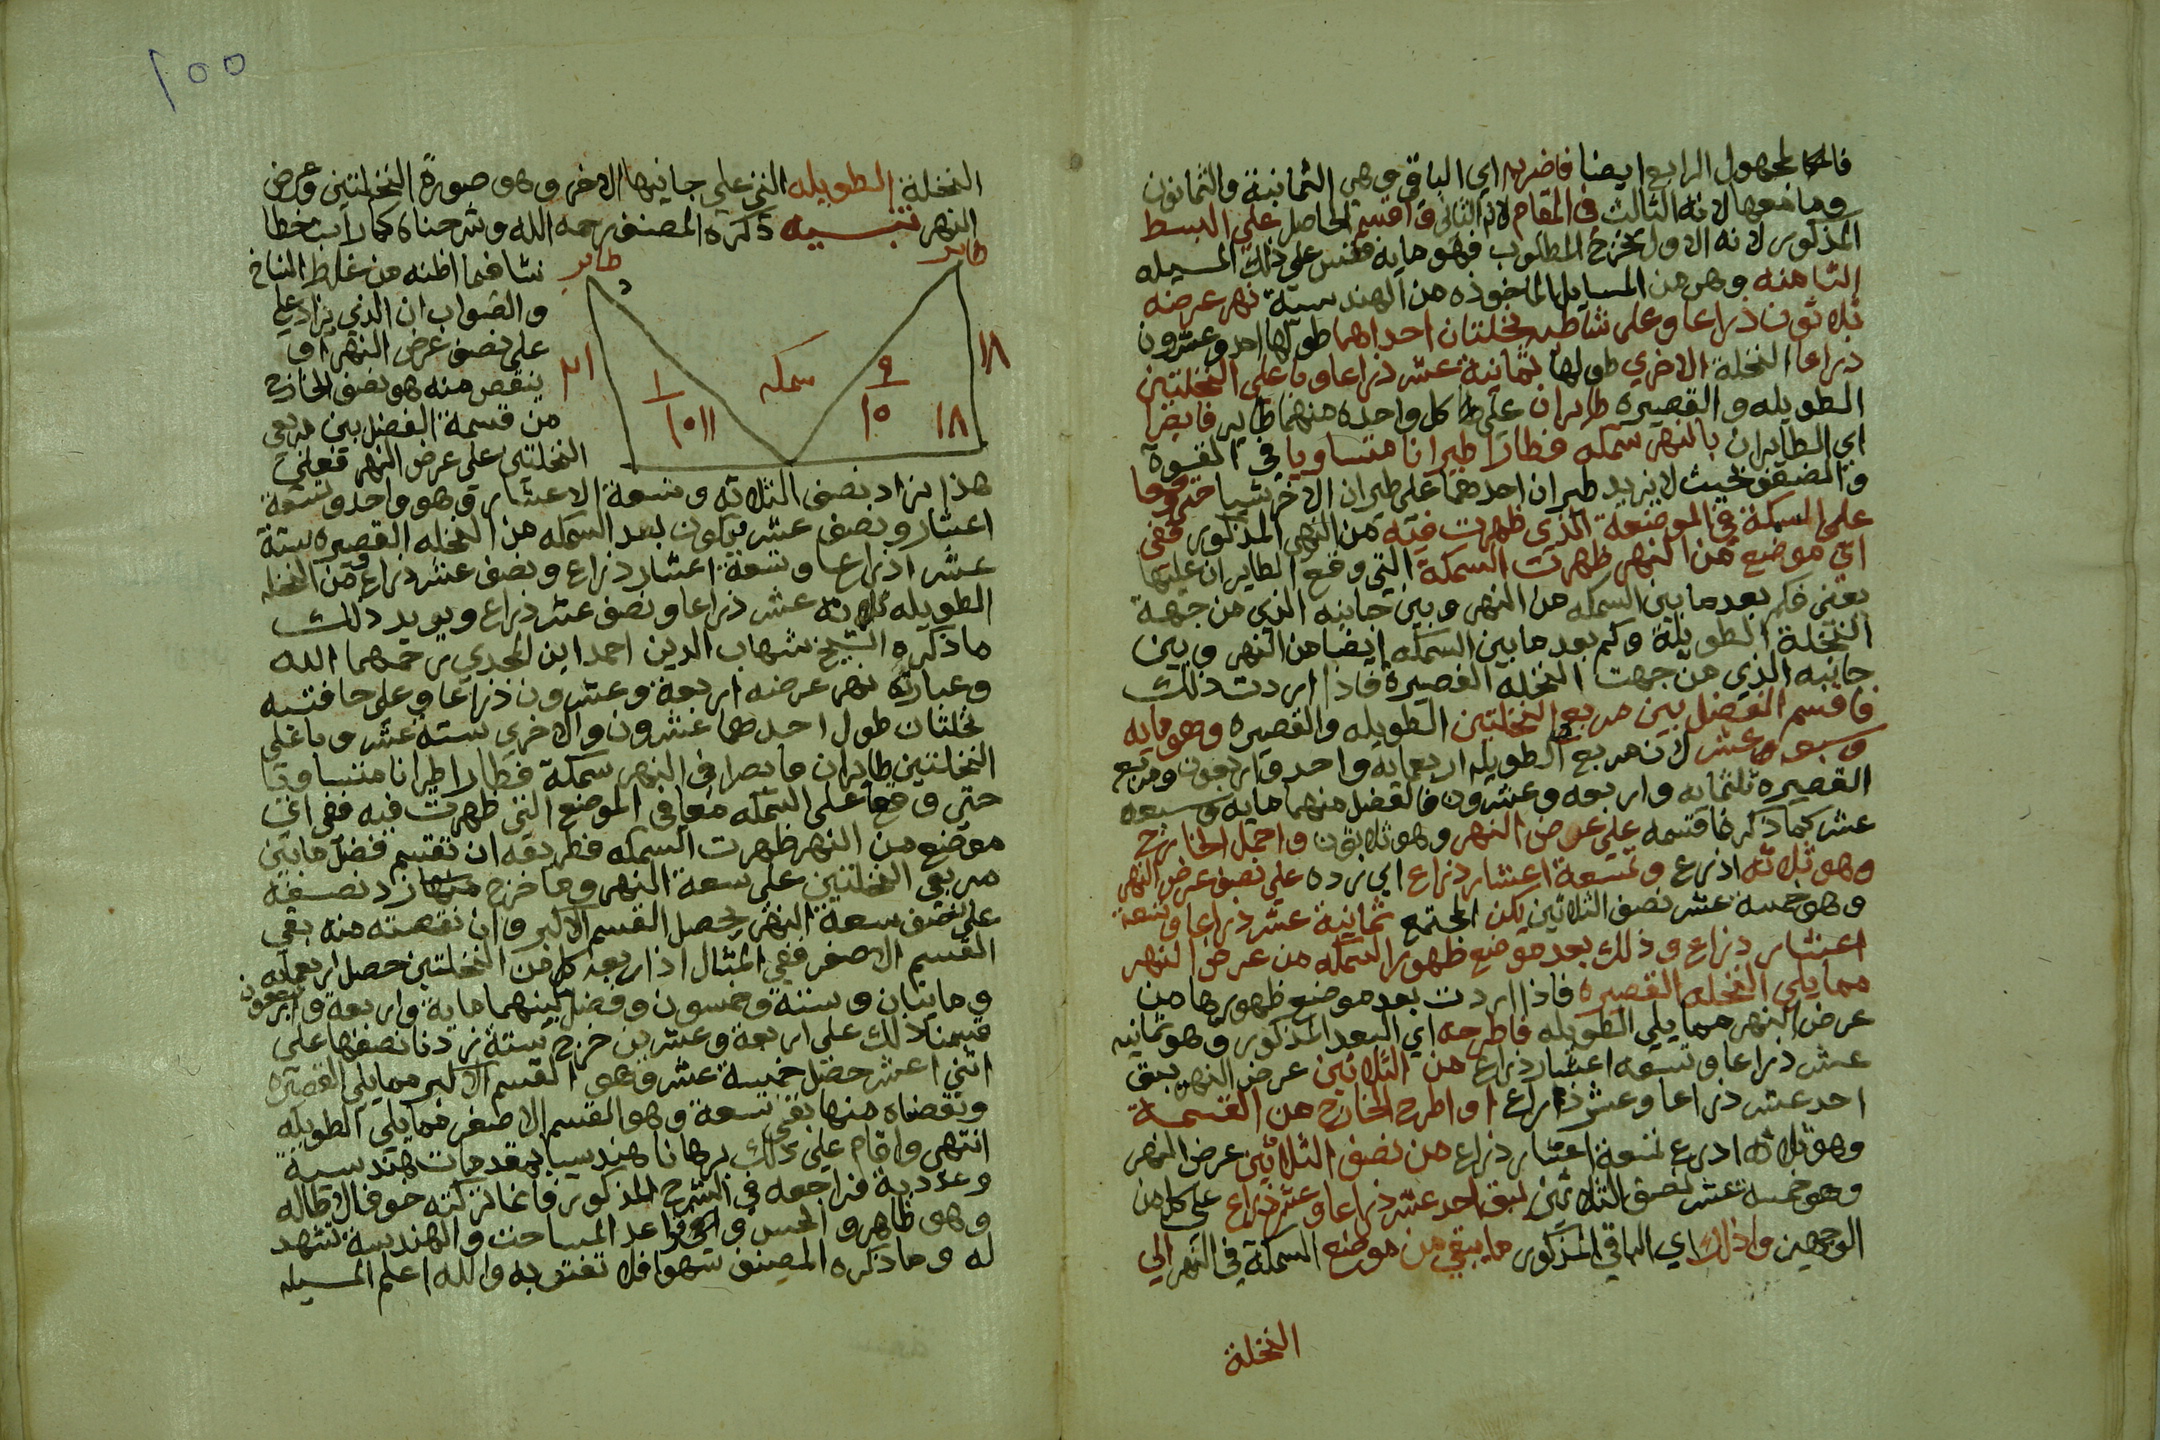 فالمجهول الرابع ايضا فاضربه اي الباقي وهي الثمانية والثمانون
وما معها لانه الثالث في المقام لانه الثاني واقسم الحاصل علي البسط
المذكور لانه الاول يخرج المطلوب فهو مايه فقس علي ذلك المسيله
الثامنه وهي من المسايل الماخوذه من الهندسية نهر عرضه
ثلاثون ذراعا وعلي شاطيه نخلتان احداهما طولها احد وعشرون
ذراعا النخلة الاخري طولها ثمانية عشر ذراعا وباعلي النخلتين
الطويله والقصيره طايران علي كل واحده منهما طاير فابصرا
اي الطايران بالنهر سمكه فطارا طيرانا متساويا في القوة
والضعف بحيث لا يزيد طيران احدهما علي طيران الاخر شيا حتي وقعا
علي السمكة في الموضعة الذي ظهرت فيه من النهر المذكور ففي
اي موضع من النهر ظهرت السمكة التي وقع الطايران عليها
يعني فكم بعد ما بين السمكه من النهر وبين جانبه الذي من جهة
النخلة الطويلة وكم بعد ما بين السمكه ايضا من النهر وبين
جانبه الذي من جهت النخله القصيرة فاذا اردت ذلك
فاقسم الفضل بين مربعي النخلتين الطويله والقصيره وهو مايه
وسبعه وعشر لان مربع الطويله اربعمايه واحد واربعون ومربع
القصيره ثلثمايه واربعه وعشرون فالفضل منهما مايه وسبعه
عشر كما ذكر فاقسمه علي عرض النهر وهو ثلاثون واحمل الخارج
وهو ثلاثه اذرع وتسعة اعشار ذراع اي زده علي نصف عرض النهر
وهو خمسه عشر نصف الثلاثين يكن المجتمع ثمانية عشر ذراعا وتسعة
اعشار ذراع وذلك بعد موضع ظهور السمكه من عرض النهر
مما يلي النخله القصيره فاذا اردت بعد موضع ظهورها من
عرض النهر مما يلي الطويله فاطرحه اي البعد المذكور وهو ثمانيه
عشر ذراعا وتسعه اعشار ذراع من الثلاثين عرض النهر يبق
احد عشر ذراعا وعشر ذراع او اطرح الخارج من القسمة
وهو ثلاثه اذرع تسعة اعشار ذراع من نصف الثلاثين عرض النهر
وهو خمسة عشر نصف الثلاثين يبق احد عشر ذراعا وعشر ذراع علي كل من
الوجهين وذلك اي الباقي المذكور ما بقي من موضع السمكة في النهر الي
النخلة
٢٥٥
النخلة الطويله التي علي جانبها الاخر وهو صورة النخلتين وعرض
النهر تنبيه ذكره المصنف رحمه الله وشرحناه كما لا خطا
نشا فيما اظنه من غلط النساخ
والصواب ان الذي يزاد علي
علي نصف عرض النهر او
ينقص منه هو نصف الخارج
من قسمة الفضل بين مربعي
النخلتين علي عرض النهر فعلي
طاير
طاير
١٨
٢١
سمكه
٩
١٠
١٨
١
١٠ ١١
هذا يزاد نصف الثلاثه وتسعة الاعشار وهو واحد وتسعة
اعشار ونصف عشر فيكون بعد السمكه من النخله القصيره ستة
عشر اذراعا وتسعة اعشار ذراع ونصف عشر ذراع ومن النخله
الطويله ثلاثه عشر ذراعا ونصف عشر ذراع ويويد ذلك
ما ذكره الشيخ شهاب الدين احمد ابن المجدي رحمهما الله
وعبارته نهر عرضه اربعة وعشرون ذراعا وعلي حافتيه
نخلتان طول احدهما عشرون والاخري ستة عشر وباعلي
النخلتين طايران ما بصرا في النهر سمكة فطارا طيرانا متساويا
حتي وقعا علي السمكه معا في الموضع التي ظهرت فيه ففي اي
موضع من النهر ظهرت السمكه فطريقه ان تقسم فضل ما بين
مربعي النخلتين علي سعة النهر وما خرج منها زد نصفه
علي نصف سعة النهر يحصل القسم الاكبر وان نقصته منه بقي
القسم الاصغر ففي المثال اذا ربعه كل من النخلتين حصل اربعمايه
ومايتان وستة وخمسون وفضل بينهما ماية واربعة واربعون
قسمنا ذلك علي اربعة وعشرين خرج ستة زدنا نصفها علي
اثني اعشر حصل خمسة عشر وهو القسم الاكبر مما يلي القصيره
ونقصناه منها بقي تسعة وهو القسم الاصغر مما يلي الطويله
انتهي واقام علي ذلك برهانا هندسيا بمقدمات هندسية
وعددية فراجعه في الشرح المذكور فانما تركته خوف الاطاله
وهو ظاهر والحس وقواعد المساحت والهندسة تشهد
له وما ذكره المصنف سهوا فلا تغتر به والله اعلم المسيله